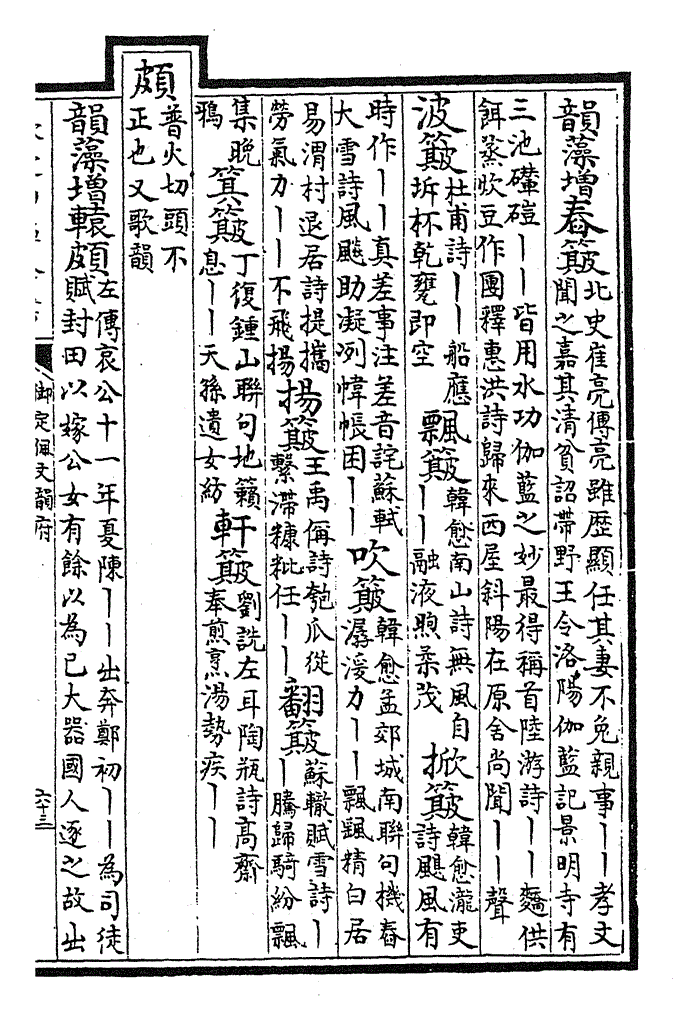 韻藻增舂簸
北史崔亮傳亮雖歷顯任其妻不免親事丨丨孝文
聞之嘉其清貧詔帶野王令洛陽伽藍記景明寺有
三池磑丨丨皆用水功伽藍之妙最得稱首陸游詩丨丨麵供
餌蒸炊豆作團釋惠洪詩歸來西屋斜陽在原舍尚聞丨丨聲
波簸
杜甫詩丨丨船應
坼杯乾甕即空
飄簸
韓愈南山詩無風自
丨丨融液煦柔茂
掀簸
韓愈瀧吏
詩颶風有
時作丨丨真差事注差音詫蘇軾
大雪詩風飈助凝冽幃帳困丨丨
吹簸
韓愈孟郊城南聯句機舂
潺湲力丨丨飄飄精白居
易渭村退居詩提攜
勞氣力丨丨不飛揚
揚簸
王禹偁詩匏瓜從
繫滯糠粃任丨丨
翻簸
蘇轍賦雪詩丨
丨騰歸騎紛飄
集晚
鴉
箕簸
丁復鍾山聯句地籟
息丨丨天孫遺女紡
軒簸
劉詵左耳陶瓶詩高齋
奉煎烹湯勢疾丨丨
頗
普火切頭不
正也又歌韻
韻藻增轅頗
左傳哀公十一年夏陳丨丨出奔鄭初丨丨為司徒
賦封田以嫁公女有餘以為已大器國人逐之故出
御定佩文韻府
六十三